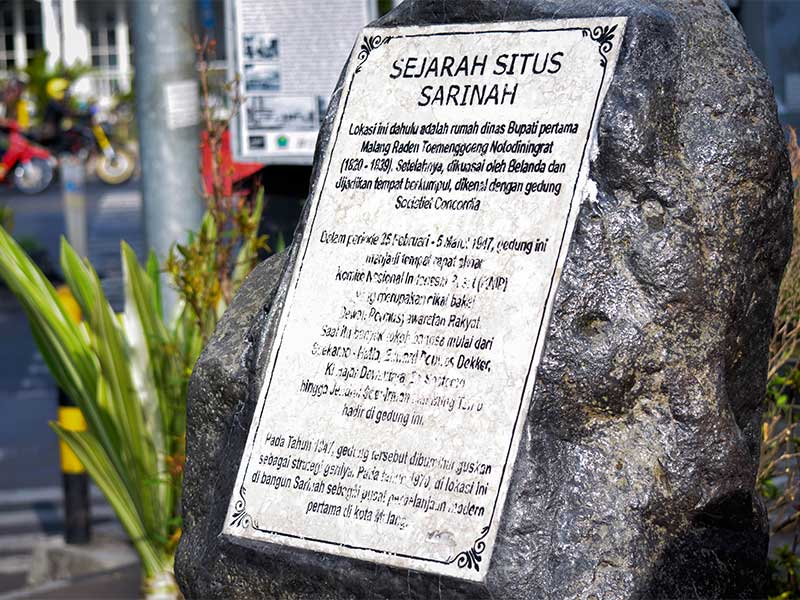 SEJARAH SITUS
SARINAH
Lokasi ini dahulu adalah rumah dinas Bupati pertama
Malang Raden Toemenggoeng Notodiningrat
(1820 - 1839). Setelahnya, dikuasai oleh Belanda dan
dijadikan tempat berkumpul, dikenal dengan gedung
Societiet Concordia
Dalam periode 25 Februari - 5 Maret 1947, gedung ini
menjadi tempat rapat akbar
Komite Nasional Indonesia Pusat (KNIP)
yang merupakan cikal bakal
Dewan Permusyawaratan Rakyat.
Saat itu banyak tokoh bangsa mulai dari
Soekarno - Hatta, Douwes Dekker,
Ki Hajar Dewantara,
hingga Jendral Soedirman
hadir di gedung ini.
Pada Tahun 1947, gedung tersebut dibumi hanguskan
sebagai strategi gerilya. Pada tahun 1970, di lokasi ini
di bangun Sarinah sebagai pusat perbelanjaan modern
pertama di kota Malang